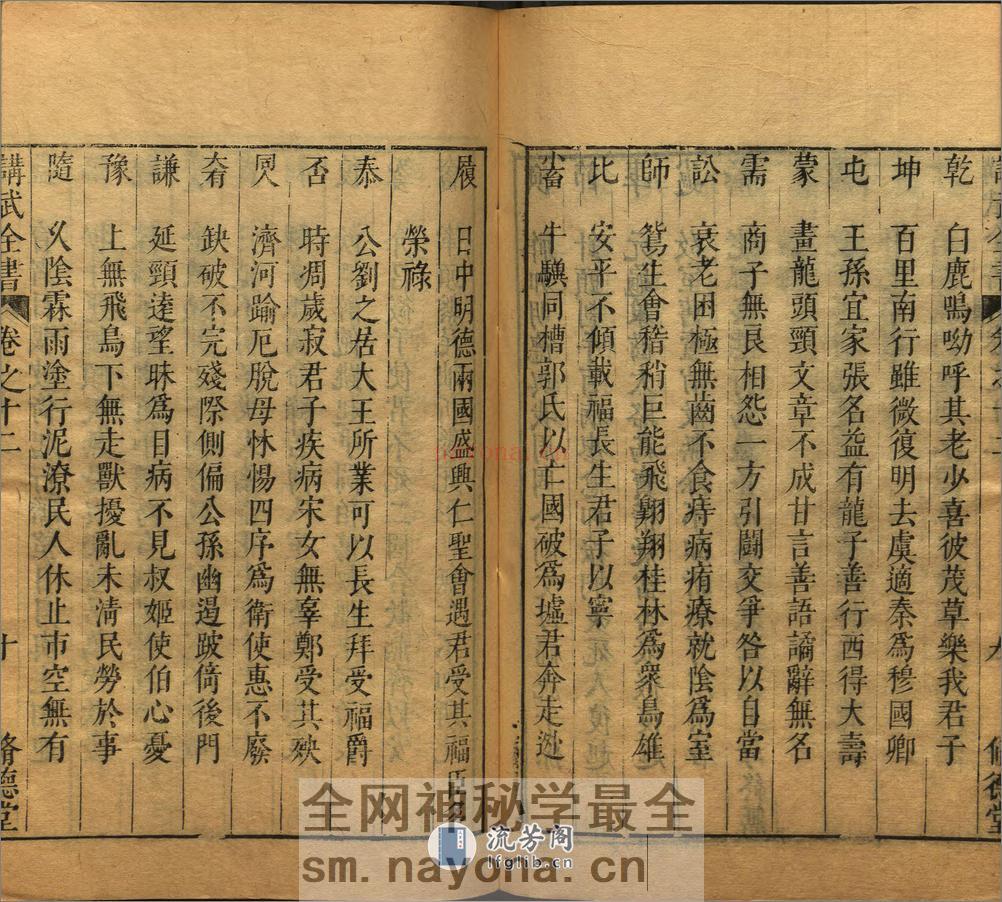 乾　白鹿鳴呦呼其老少喜彼茂草樂我君子
坤　百里南行雖微復明去虞適秦爲穆國卿
屯　王孫宜家張名益有龍子善行西得大壽
蒙　畫龍頭頸文章不成甘言善語譎辭無名
需　商子無良相怨一方引鬭交爭咎以自當
訟　衰老困極無齒不食痔病痏療就陰爲室
師　鴛生會稽稍巨能飛翺翔桂林爲衆鳥雄
比　安平不傾載福長生君子以寧
畜　牛驥同槽郭氏以亡國破爲墟君奔走逊
履　日中明德兩國盛興仁聖會遇君受其福臣
榮祿
泰　公劉之居大王所業可以長生拜受福爵
否　時凋歲寂君子疾病宋女無辜鄭受其殃
濟河踰厄脫母怵惕四序爲衛使惠不廢
缺破不完殘際側偏公孫幽遏跛倚後門
謙　延頸逹望眛爲目病不見叔姬使伯心憂
豫　上無飛鳥下無走獸擾亂未淸民勞於事
隨　久陰霖雨塗行泥潦民人休止市空無有
講武全書　卷之十二　十　脩德堂
nayona.cn
全网神秘学最全
流芳阁
lfglib.cn
sm.nayona.cn